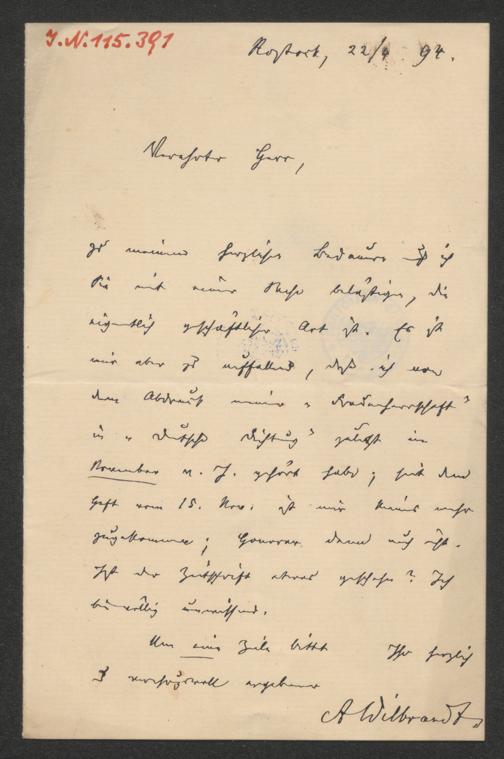 J.N. 115.391
Rostock, 22/4 94.
Verehrter Herr,
zu meinem herzlichen Bedauern muß ich
Sie mit einer Sache belästigen, die
eigentlich geschäftlicher Art ist. Es ist
mir aber zu auffallend, daß ich von
dem Abdruck meiner „Frauenherrschaft"
in „Deutsche Dichtung" zuletzt im
November v. J. gehört habe; seit dem
Heft vom 15. Nov. ist mir keines mehr
zugekommen; Honorar dann auch nicht.
Ist der Zeitschrift etwas geschehen? Ich
bin völlig unwissend.
Um eine Zeile bittet Ihr herzlich
verehrungsvoll ergebener
AWilbrandt.